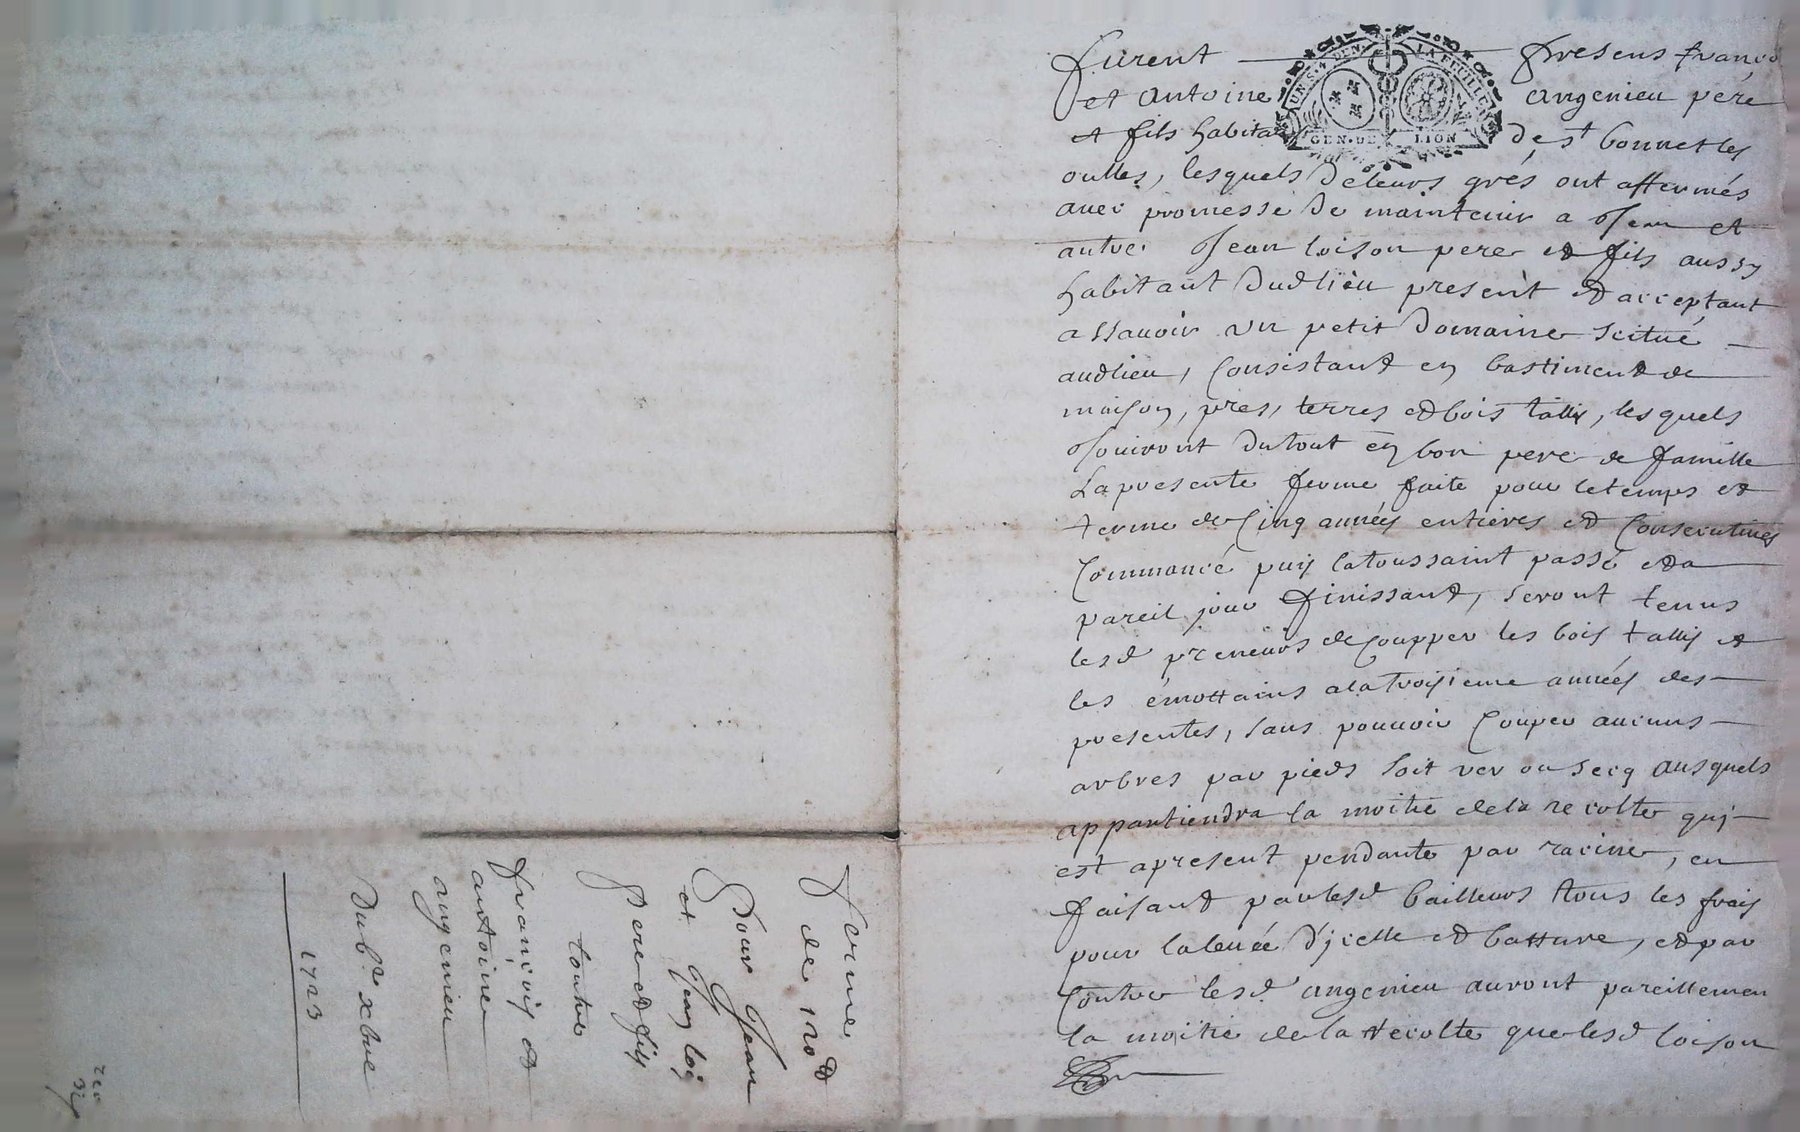 furent presens françois
et antoine angenieu pere
et fils habitans de st bonnet les
oulles, lesquels de leurs grés ont affermés
avec promesse de maintenir a Jean et
autre Jean loison pere et fils aussy
habitant dud lieu present et acceptant
assavoir un petit domaine scitué
aud lieu, consistant en bastiment de
maison, pres, terres et bois tallis, lesquels
Jouiront du tout en bon pere de famille
La presente ferme faite pour le temps et
terme de cinq années entieres et consecutives
commancé puis la toussaint passé et a
pareil jour finissant, seront tenus
lesd preneurs de coupper les bois tallis et
les émottains a la troisieme années des
presentes, sans pouvoir couper aucuns
arbres par pieds soit ver ou secq ausquels
appartiendra la moitié de la recolte qui
est apresent pendante par racine, en
faisant par lesd bailleurs tous les frais
pour la levée d'icelle et batture, et par
contre lesd angenieu auront pareillemen
la moitié de la recolte que lesd loison
UN S. 4 DEN. LA FEUILLE
GEN. DE LION
ferme
de 120
Pour Jean
et Jean loi
Pere et fils
Contre
françois et
antoine
angenieu
Du xbre
1723